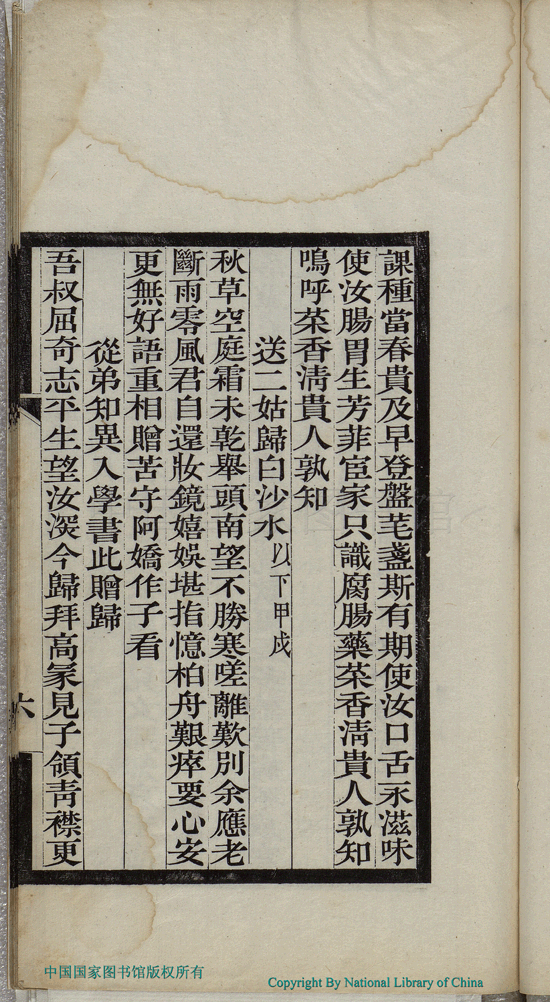 課種當春貴及早登盤芼盞斯有期使汝口舌永滋味
使汝腸胃生芳菲宦家只識腐腸藥茶香淸貴人孰知
嗚呼茶香淸貴人孰知
送二姑歸白沙水以下甲戌
秋草空庭霜未乾舉頭南望不勝寒嗟離歎別余應老
斷雨零風君自還妝鏡嬉娛堪指憶柏舟艱瘁要心安
更無好語重相贈苦守阿嬌作子看
從弟知異入學書此贈歸
吾叔屈奇志平生望汝深今歸拜高冢見子領靑襟更
六
中国国家图书馆版权所有
Copyright By National Library of China